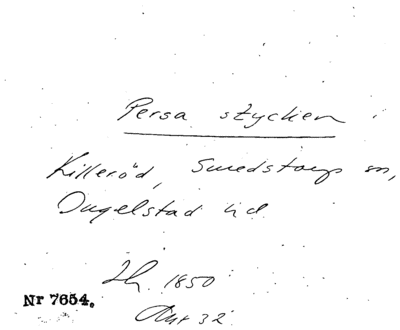 Persa stycken
Killeröd, Smedstorps sn,
Ingelstad hd
1850
Nr 7654.
Ant 32